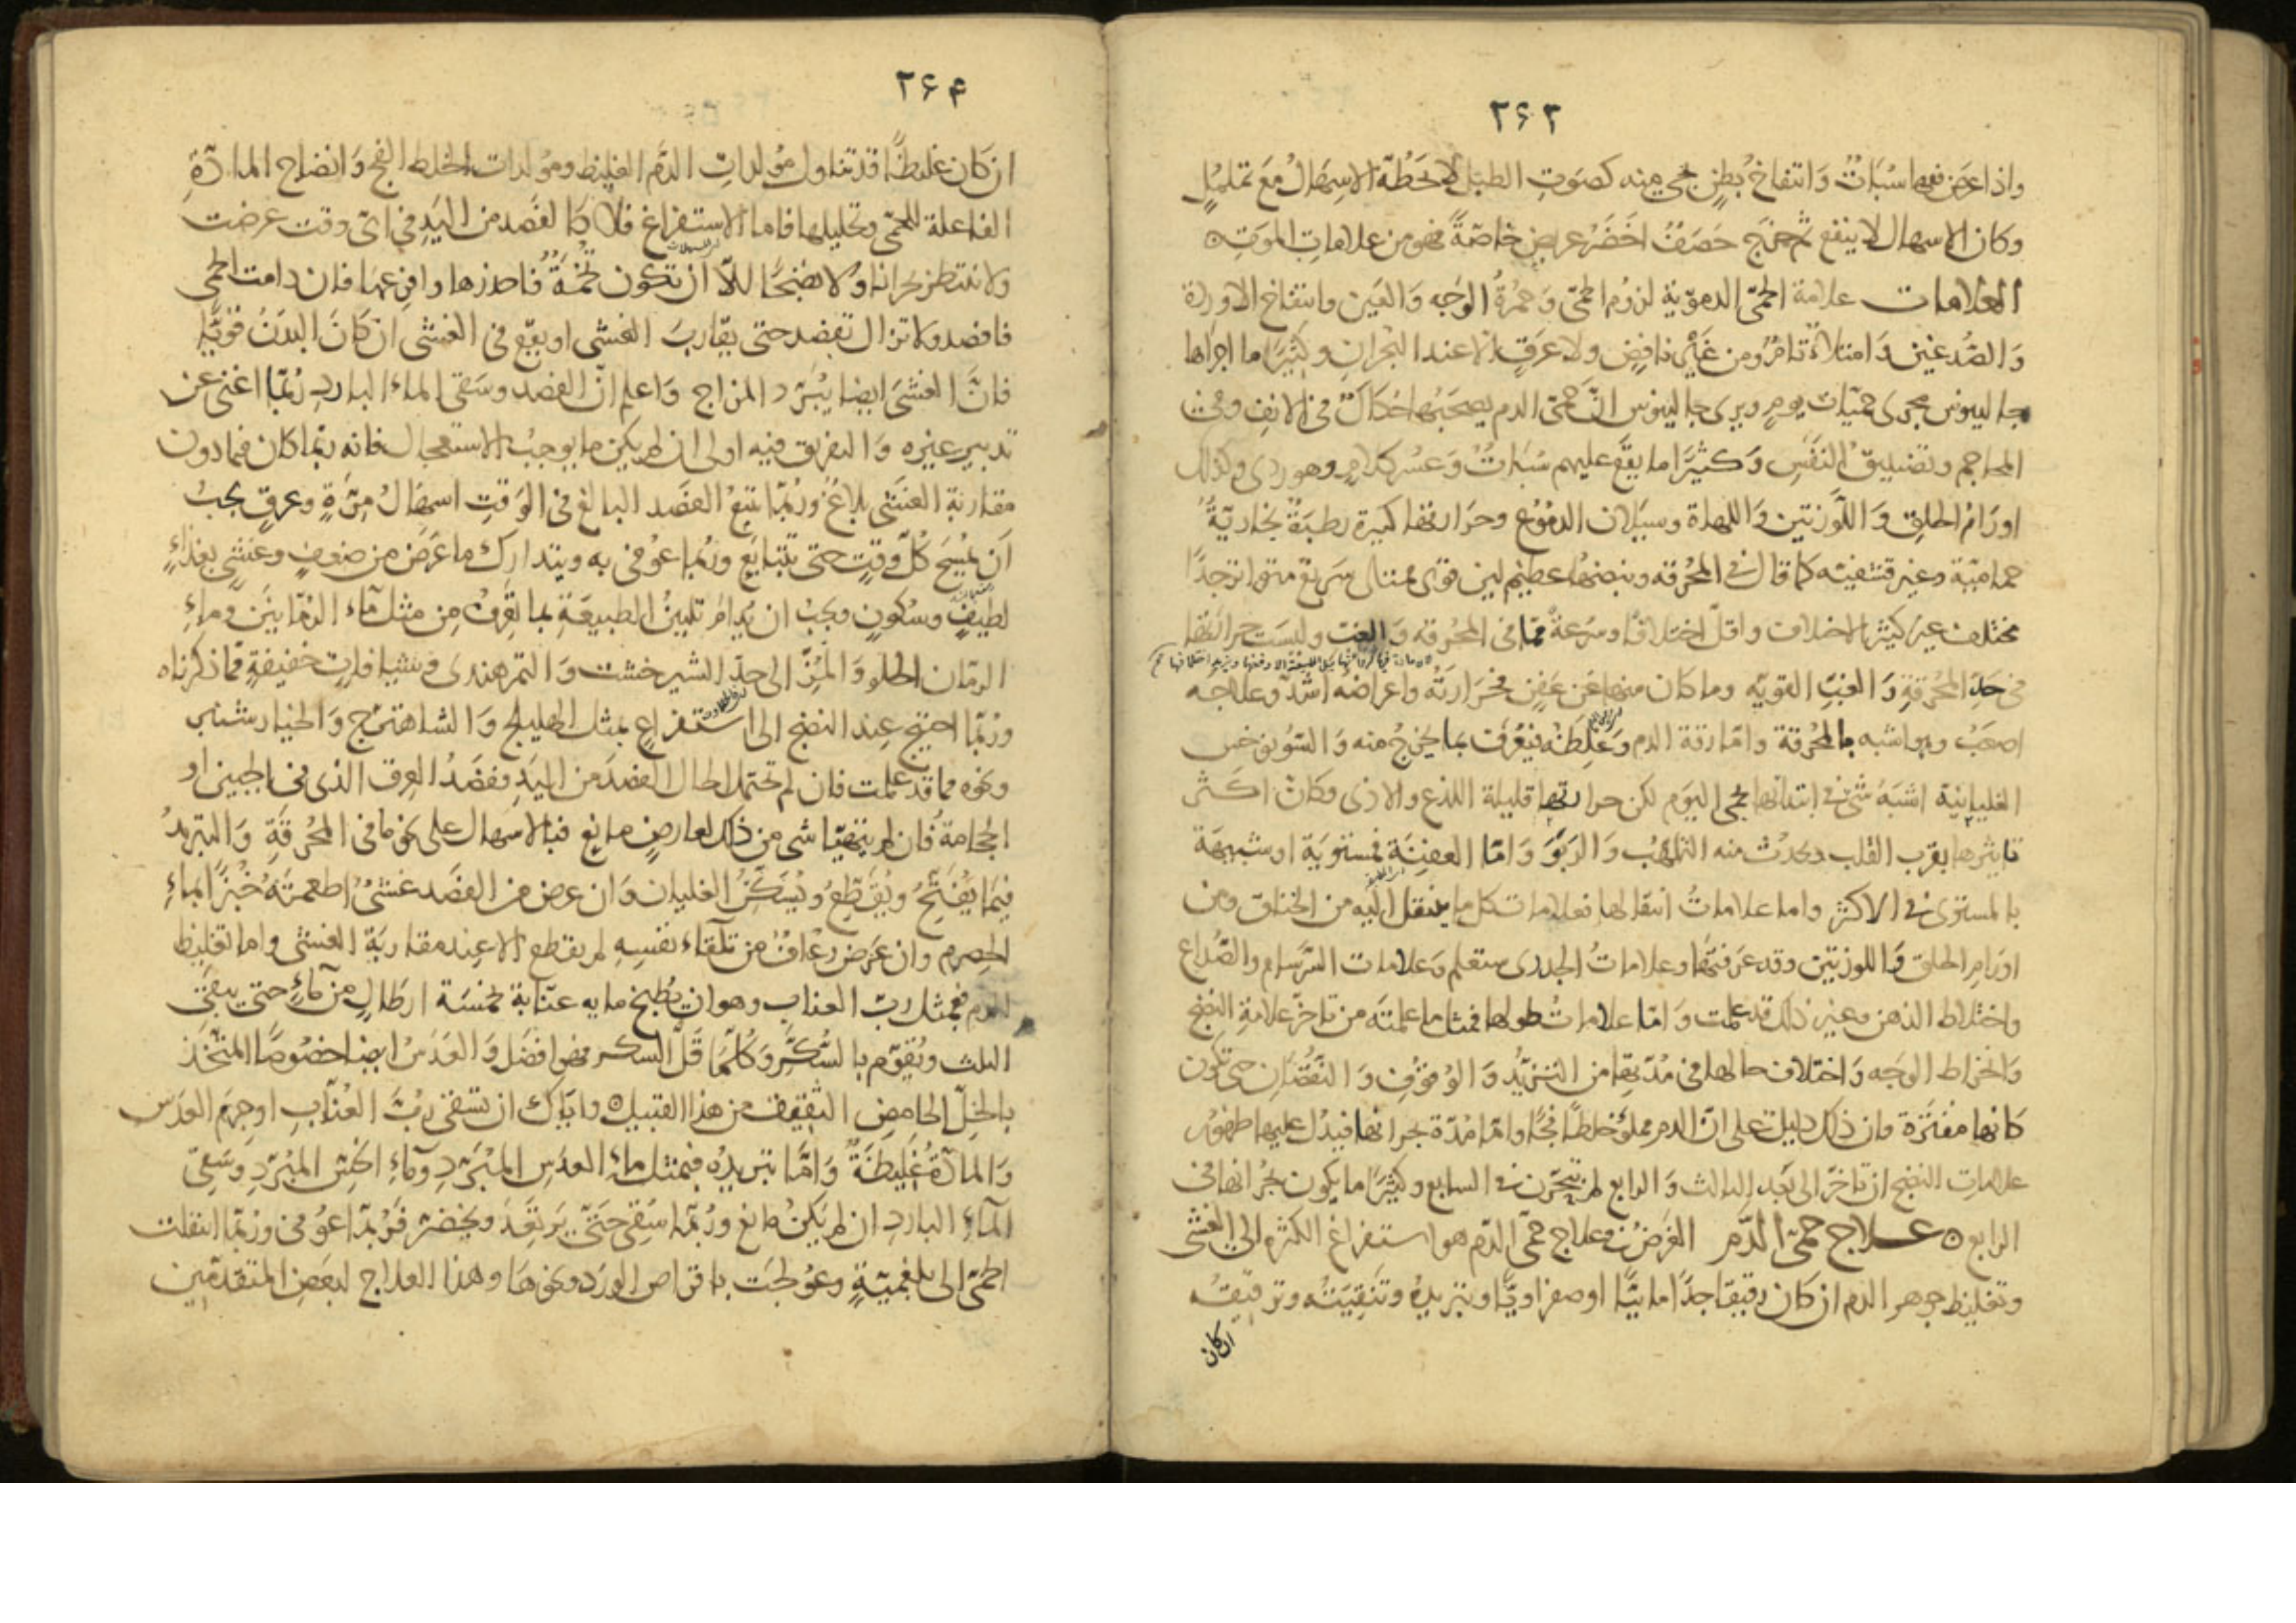 ۲۶۳
واذا عرض فيها سُبَاتٌ وَانتفاخ بُطنٍ يجئ منه كصَوتِ الطبل لا يَحُطّه الاسهَالُ مَعَ تملمُلٍ
وكان الاسهال لا ينفع ثم خرج حَصَفٌ اخَضَرُ عريض خاصّةً فهو من علامات الموت
العلامات علامة الحمّى الدمويّة لزوم الحمّى وَحمرُة الوَجه وَالعَين وانتفاخ الاوردة
وَالصُّدغين وَامتلاءٌ تامٌّ من غير نافِضٍ ولا عرَقٍ الّا عند البُحرانِ وكثيرًا ما اجراها
جالينوس مجرى حمّيات يومٍ ويرى جالينوس انَّ حمّى الدم يصحَبُها حُكاكٌ فى الانفِ وفى
المحاجم وتضييق النَفَسِ وَكثيرًا ما يقع عليهم سُبَاتٌ وَعسُر كلامٍ وهو ردى وكذلك
اورَامُ الحلق وَاللَّوزتين وَاللهاة وسيلان الدمُوع وحرَارتها كثيرة رطبَةٌ بخاريّةٌ
حماميّة وغير قشفيّة كما قال فى المحُرقه ونبضها عظيم لين قوى ممتلى سريع متواتر جدًا
مختلف غير كثير الاختلاف واقلّ اختلافًا وسُرعةً ممّا فى المحُرقه وَالغب وليست حرارتها
فى حدّ المحُرقةِ وَالغبّ القويّه وما كان منها عَن عَفِنٍ فحَرَارتُه واعراضه اشدّ وعلاجه
اصعَبُ وهو اشبه بالمحرقة وامّا رقة الدم وَغلظَهُ فيُعُرفُ بما يخرجُ منه وَالسُونوخس
الغليانيّة اشبَهُ شئ فى ابتدائها بحمى اليوم لكن حرارتها قليلة اللذع والاذى وكانّ اكثَر
تاثيرها بقرب القلب ويحدُث منه التلهّبُ وَالرَبوُ وَامّا العفِنَة فمستويَة او شبيهَة
بالمستوى فى الاكثر واما علاماتُ انتقالها فعلامات كل ما ينتقل اليه من الخناق ومن
اورَامِ الحلق وَاللوزتين وقد عرَفتها وعلاماتُ الجدرى ستعلم وَعلامات السَّرسام والصُّداع
واختلاط الذهن وغير ذلك قد علمت وَامّا علاماتُ طولها فمثل ما علمتَه من تاخُّر علامةِ النضج
وَانخراط الوَجه وَاختلاف حالها فى مُدّتها من التزيُّد وَالوُقوُفِ وَالنقُصَانِ حتى تكون
كانها مفتَرة وانّ ذلك دليل على انّ الدم مملوٌ خلطًا فجًّا وامّا مُدّة بحرانها فيدُل عليها ظهوُر
علامات النضج ان تاخّر الى بَعد الثالث وَالرابع لم يتبحّرن فى السابع وكثيرًا ما يكون بحُرانها فى
الرابع علاج حمى الدَّم الغَرضُ فى علاج حمّى الدّم هو استفراغ الكثرة الى الغشى
وتغليظ جوهر الدم ان كان رقيقا جدًّا مائيًّا او صفراويًّا وتبريدُه وتَنقِيَتُه وترقيقُه
ان كان
۲۶۴
ان كان غليظًا قد تناول مؤلداتِ الدَّم الغليظ ومولدات الخلط الفج وَانضاج المادّةِ
الفاعلة للحمّى وتحليلها فاما الاستفراغ فلا كالفَصد من اليَدِ فى اىّ وقت عرضت
ولا تنتظر بحُرانا ولا نضجًا اللاّ ان تكون تخَمَةٌ فاحذرها وافرِعها فان دامت الحمى
فافصد ولا تزال تفصد حتى يقاربَ الغشى او يقع فى الغشى ان كانَ البدَنُ قويًّا
فانَّ الغشىَ ايضا يُبرّد المزاج وَاعلم انّ الفصد وسَقى الماء البارد رُبّما اغنى عن
تدبير غيره وَالتفريق فيه اولى ان لم يكن ما يوجبُ الاستعجال فانه ربّما كان فما دون
مقاربة الغشى بلاغ ورُبّما تبعَ الفصَد البالغ فى الوَقتِ اسهَالُ مِرّةٍ وعرقٍ يجبُ
اَن يُمسَح كُلَّ وقتٍ حتى يتتابَع ورُبما عوُفى به ويتدارك ما عَرَض من ضعفٍ وغشىٍ بغذاءٍ
لطيفٍ وسُكونٍ ويجبُ ان يُدامَ تليين الطبيعَةِ بما تعرفُ مِن مثل مآء الرمّانين وماءِ
الرمّان الحلو وَالمُزّ الى حدّ الشيرخشت وَالتمر هندى وبشيافات خفيفةٍ ممّا ذكرناه
ورُبّما احتيج عند النضج الى استفراغ بمثل الهليلج وَالشاهترج وَالخيارشنبر
ونحوه مما قد علمت فان لم تحتمل الحال الفصدَ من اليَدِ ففصَدُ العِرق الذى فى الجبين او
الحجامةُ فان لم يتهيّا شى من ذلك لعارضٍ مانع فبالاسهال على نحو ما فى المحُرقَةِ وَالتبريدُ
فيما يُفَتّحُ ويُقَطّعُ ويُسَكّنُ الغليان وَان عرض من الفصَد غشىٌ اطعمتَهُ خُبزًا بماءِ
الحِصرم وان عرَض رعَافٌ من تلقاء نفسِهِ لم يقطع الا عند مقاربَة الغشى واما تغليظ
الدم فبمثل ربّ العناب وهو ان يُطبخ مايه عنّابة بخمسَة ارطالٍ من مآءٍ حتى يبقى
الثلث ويُقوّم بالسُكّر وَكلّمَا قَلّ السكر فهو افضَل وَالعَدَسُ ايضا خصُوصًا المتّخَذ
بالخِلّ الحامِضِ الثقيف من هذا القبيل واِيّاك ان تسقى رُبَّ العُنّابِ او جِرمَ العدَس
وَالمادّةُ غَليظَةٌ وَامَّا تبريدُه فبمثل ماء العدَسِ المبُرّدِ ومآءِ الخسّ المبُرّدِ وسَقىِ
المآء الباردِ ان لم يكنُ مانع ورُبّما سُقى حَتّى يَرتعِدَ ويخضرّ فرُبّما عوُفى ورُبّما انتقلت
الحمّى الى بلغميّةٍ وعوُلجَت باقراص الورَد ونحوهَا وهذا العلاج لبعَضِ المتقدّمين